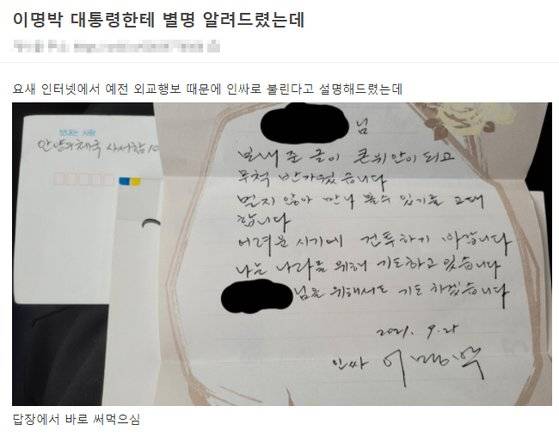 이명박 대통령한테 별명 알려드렸는데
요새 인터넷에서 예전 외교행보 때문에 인싸로 불린다고 설명해드렸는데
보내는 사람
안양우체국 사서함
님
보내 준 글이 큰 위안이 되고
무척 반가웠습니다
멀지 않아 만나 볼수 있기를 고대
합니다
어려운 시기에 건투하기 바랍니다
나는 나라를 위해 기도하고 있습니다
님을 위해서도 기도 하겠습니다
2021. 9. 21
인싸 이명박
답장에서 바로 써먹으심